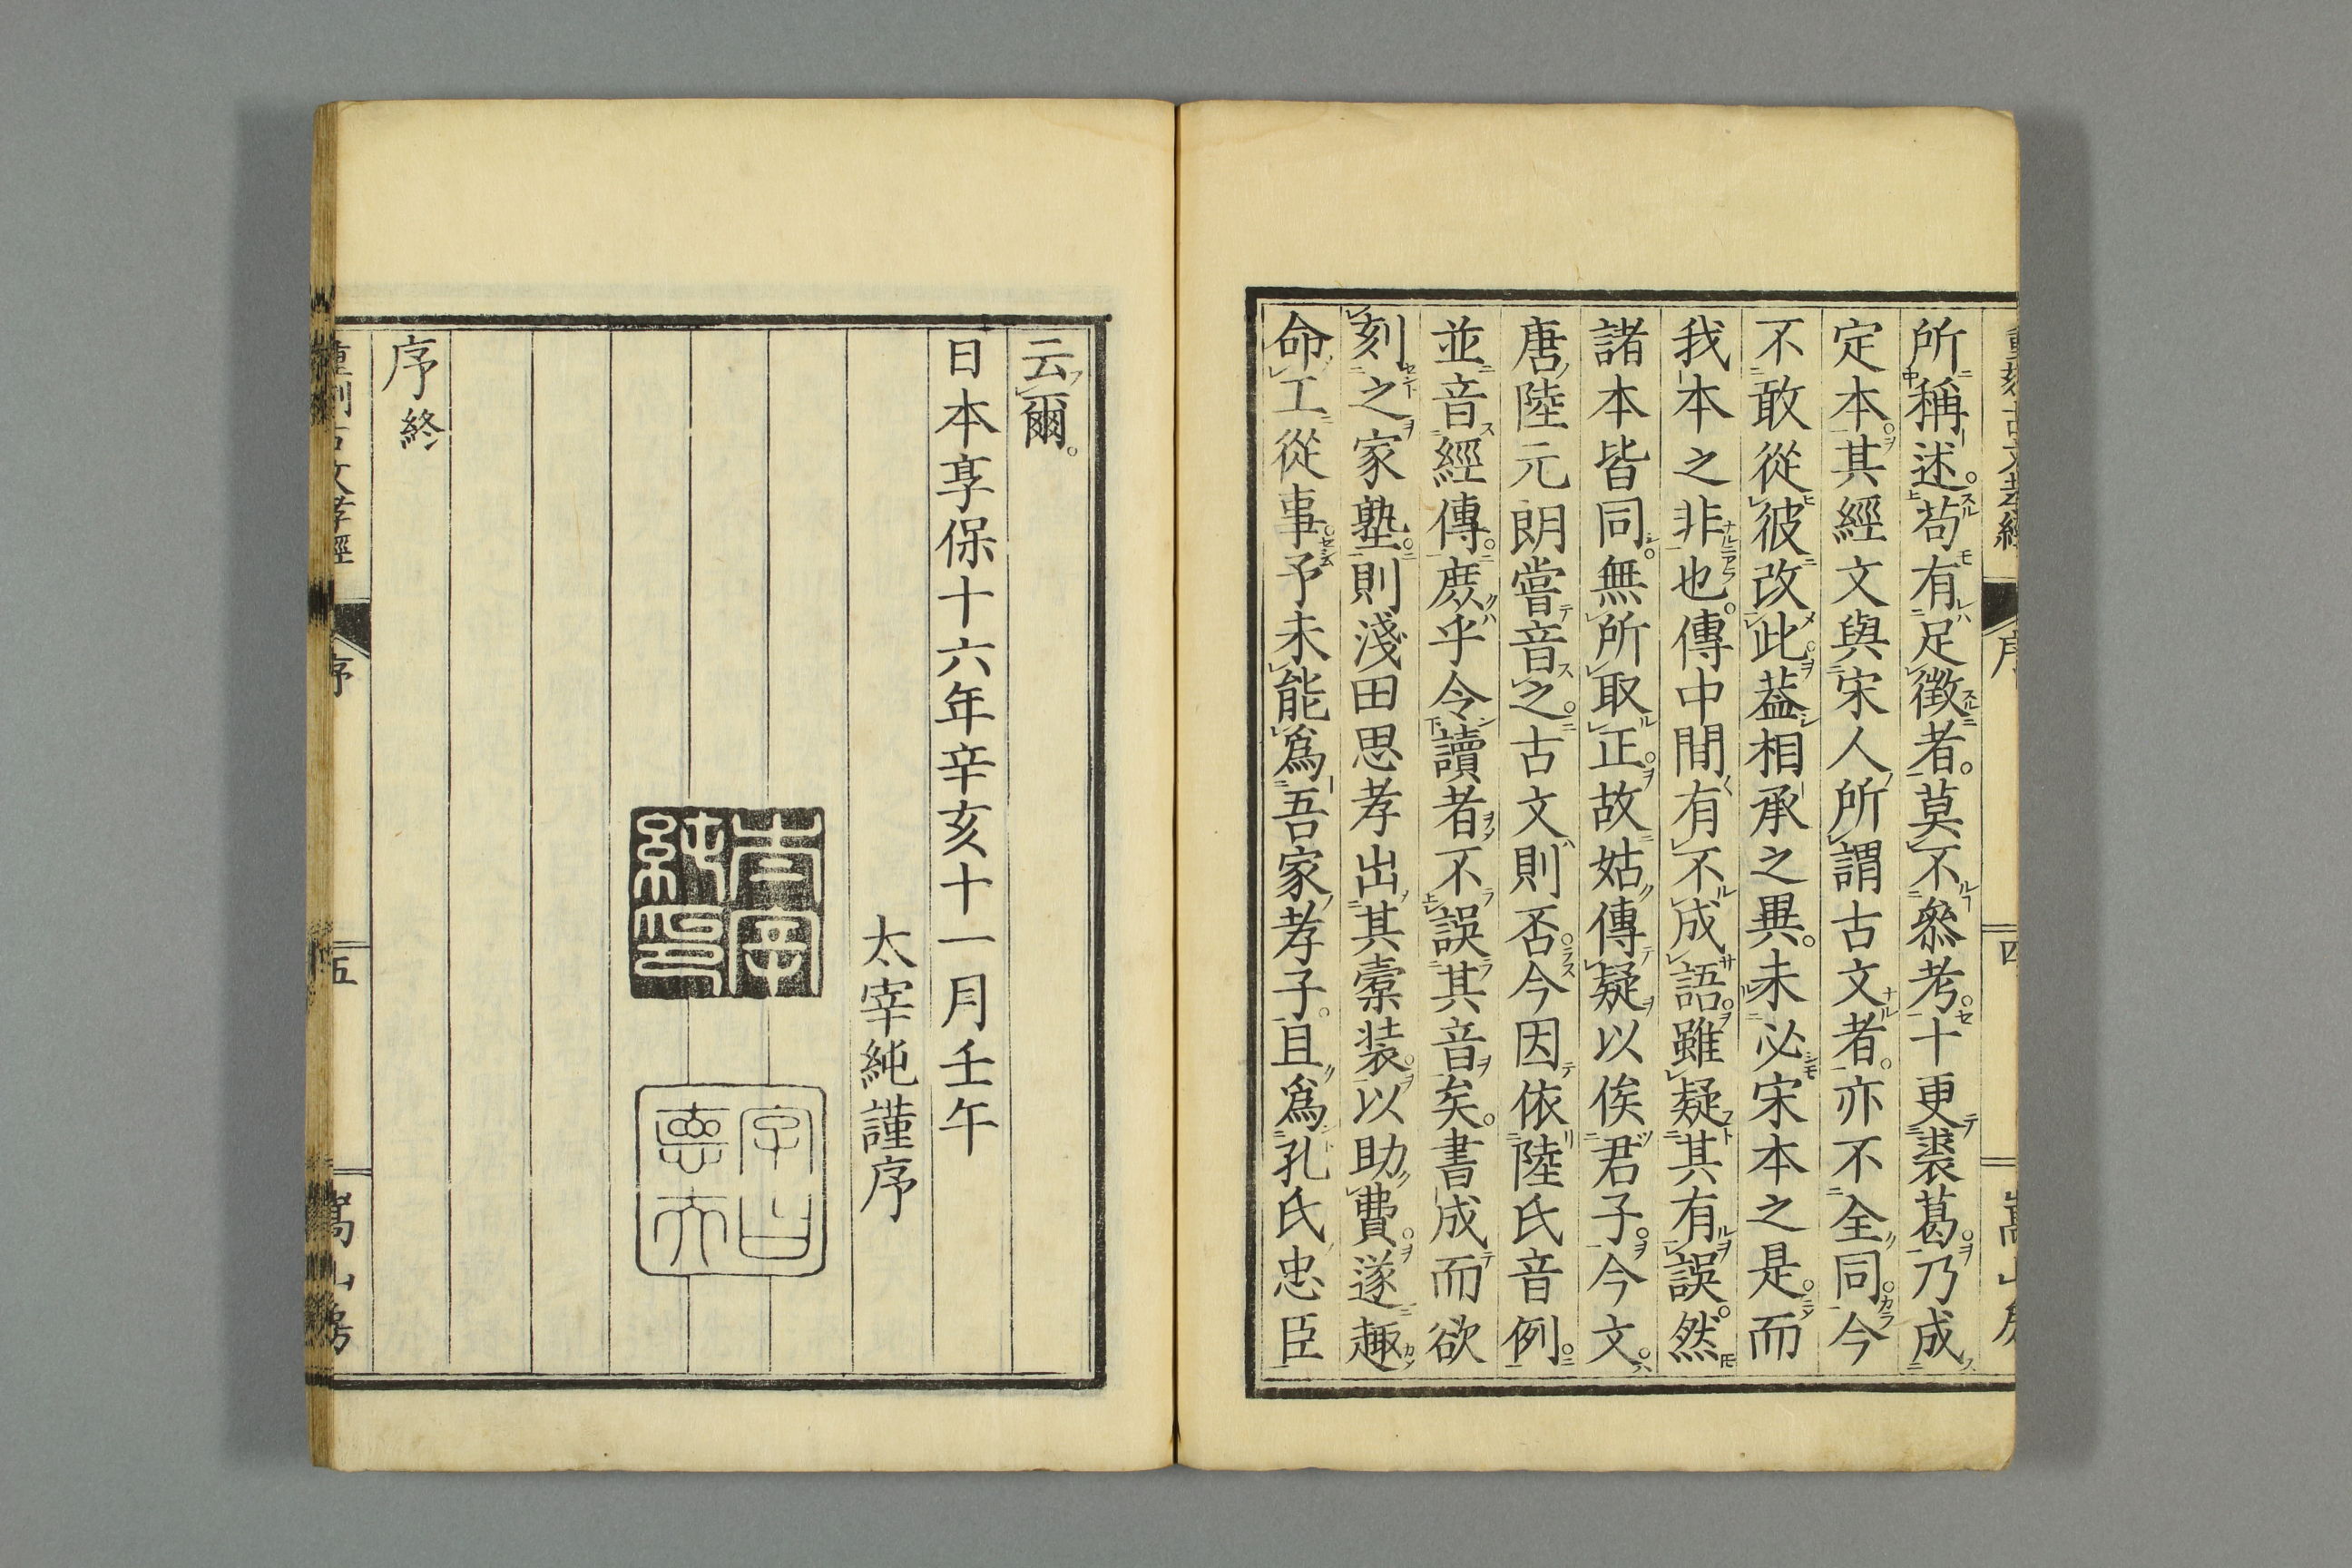 所稱述。苟有足徵者。莫不叅考。十更裘葛。乃成
定本。其經文與宋人所謂古文者。亦不全同。今
不敢從彼改此。葢相承之異。未必宋本之是。而
我本之非也。傳中間有不成語。雖疑其有誤。然
諸本皆同。無所取正。故姑傳疑以俟君子。今文。
唐陸元朗嘗音之。古文則否。今因依陸氏音例。
並音經傳。庶乎令讀者不誤其音矣。書成而欲
刻之家塾。則淺田思孝出其橐装。以助費。遂趣
命工從事。予未能爲吾家孝子。且爲孔氏忠臣
四
云爾。
日本享保十六年辛亥十一月壬午
太宰純謹序
太宰純印
字曰德夫
序終
重刻古文孝經
序
五
嵩山房